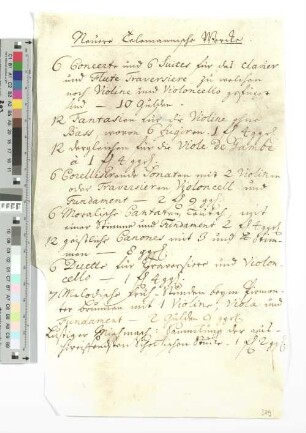 Neuere Telemannische Wercke.
6 Concerte und 6 Suites für das Clavier
und Flute Traversiere, zu welchen
noch Violine und Violoncello gefüget
sind — 10 Gülden.
12 Fantasien für die Violine ohne
Bass, wovon 6 Fugiren. 1 4 ggr.
12 dergleichen für die Viole de Gambe
à 1 4 ggr.
6 Corellisirende Sonaten mit 2 Violinen
oder Traversieren Violoncell und
Fundament — 2 ggr.
6 Moralische Cantaten mit
einer Stimme und Fundament 2 4 ggr.
12 geistliche Canones mit 2 und
men — 8 ggr.
6 Duette für Traversiere und Violon
cello — 1 4 ggr.
7 Stunden bey
Brunnen mit 1 Violine, Viola und
Fundament — 2 Gülden ggr.
Lustiger Mischmasch: Sammlung der
Schottischen Stücke. 1 2 ggr.